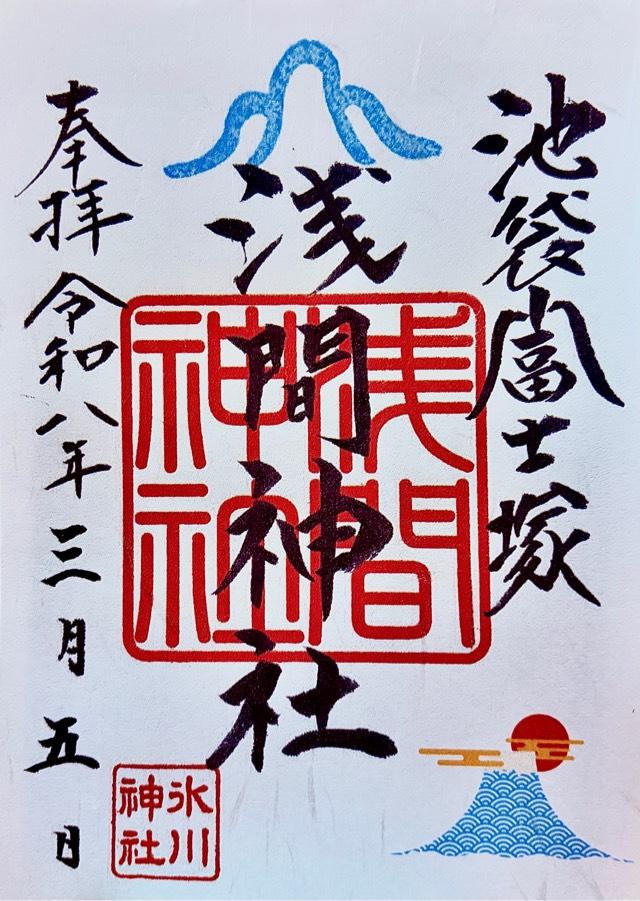 池袋富士塚
浅間神社
浅間神社
奉拝 令和八年三月五日
氷川神社